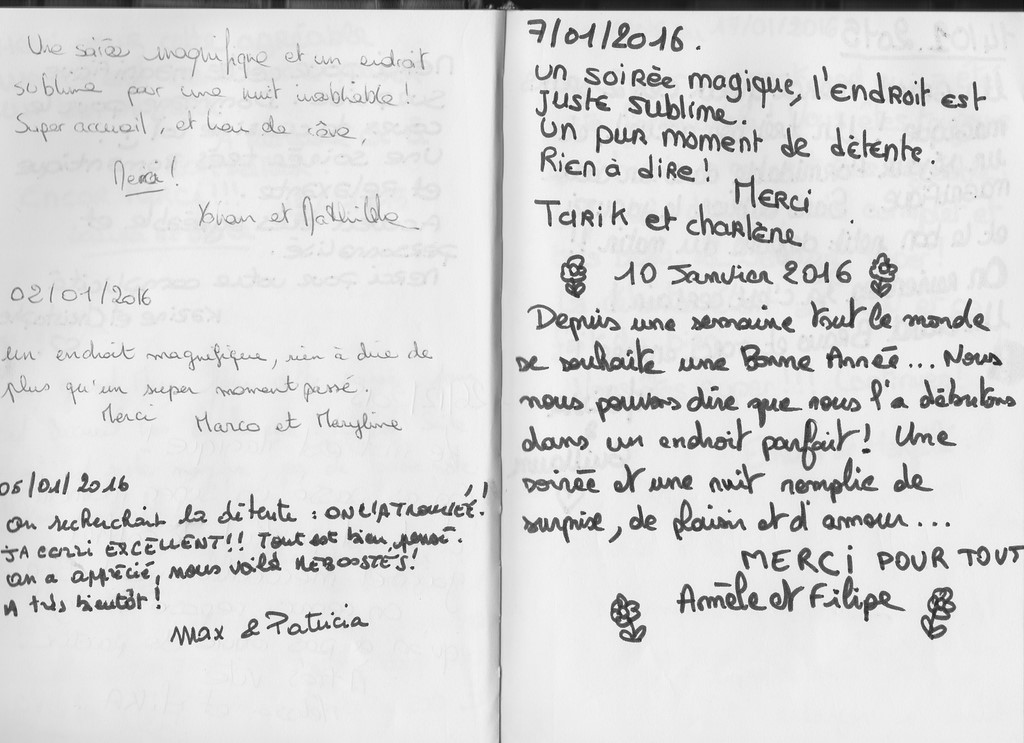 Une soirée magnifique et un endroit
sublime pour une nuit inoubliable!
Super accueil, et lieu de rêve.
Merci!
Yohan et Mathilde
02/01/2016
Un endroit magnifique, rien à dire de
plus qu'un super moment passé
Merci
Marco et Maryline
05/01/2016
On recherchait la détente : ON L'A TROUVÉE!!
JACUZZI EXCELLENT!! Tout est bien pensé.
On a apprécié, nous voilà REBOOSTÉS!
A très bientôt!
Max & Patricia
7/01/2016.
un soirée magique, l'endroit est
juste sublime.
un pur moment de détente.
Rien à dire!
MERCI
Tarik et charlène
10 Janvier 2016
Depuis une semaine tout le monde
se souhaite une Bonne Année... Nous
nous pouvons dire que nous l'a débutons
dans un endroit parfait! Une
soirée et une nuit remplie de
surprise, de plaisir et d'amour...
MERCI POUR TOUT
Armèle et Filipe